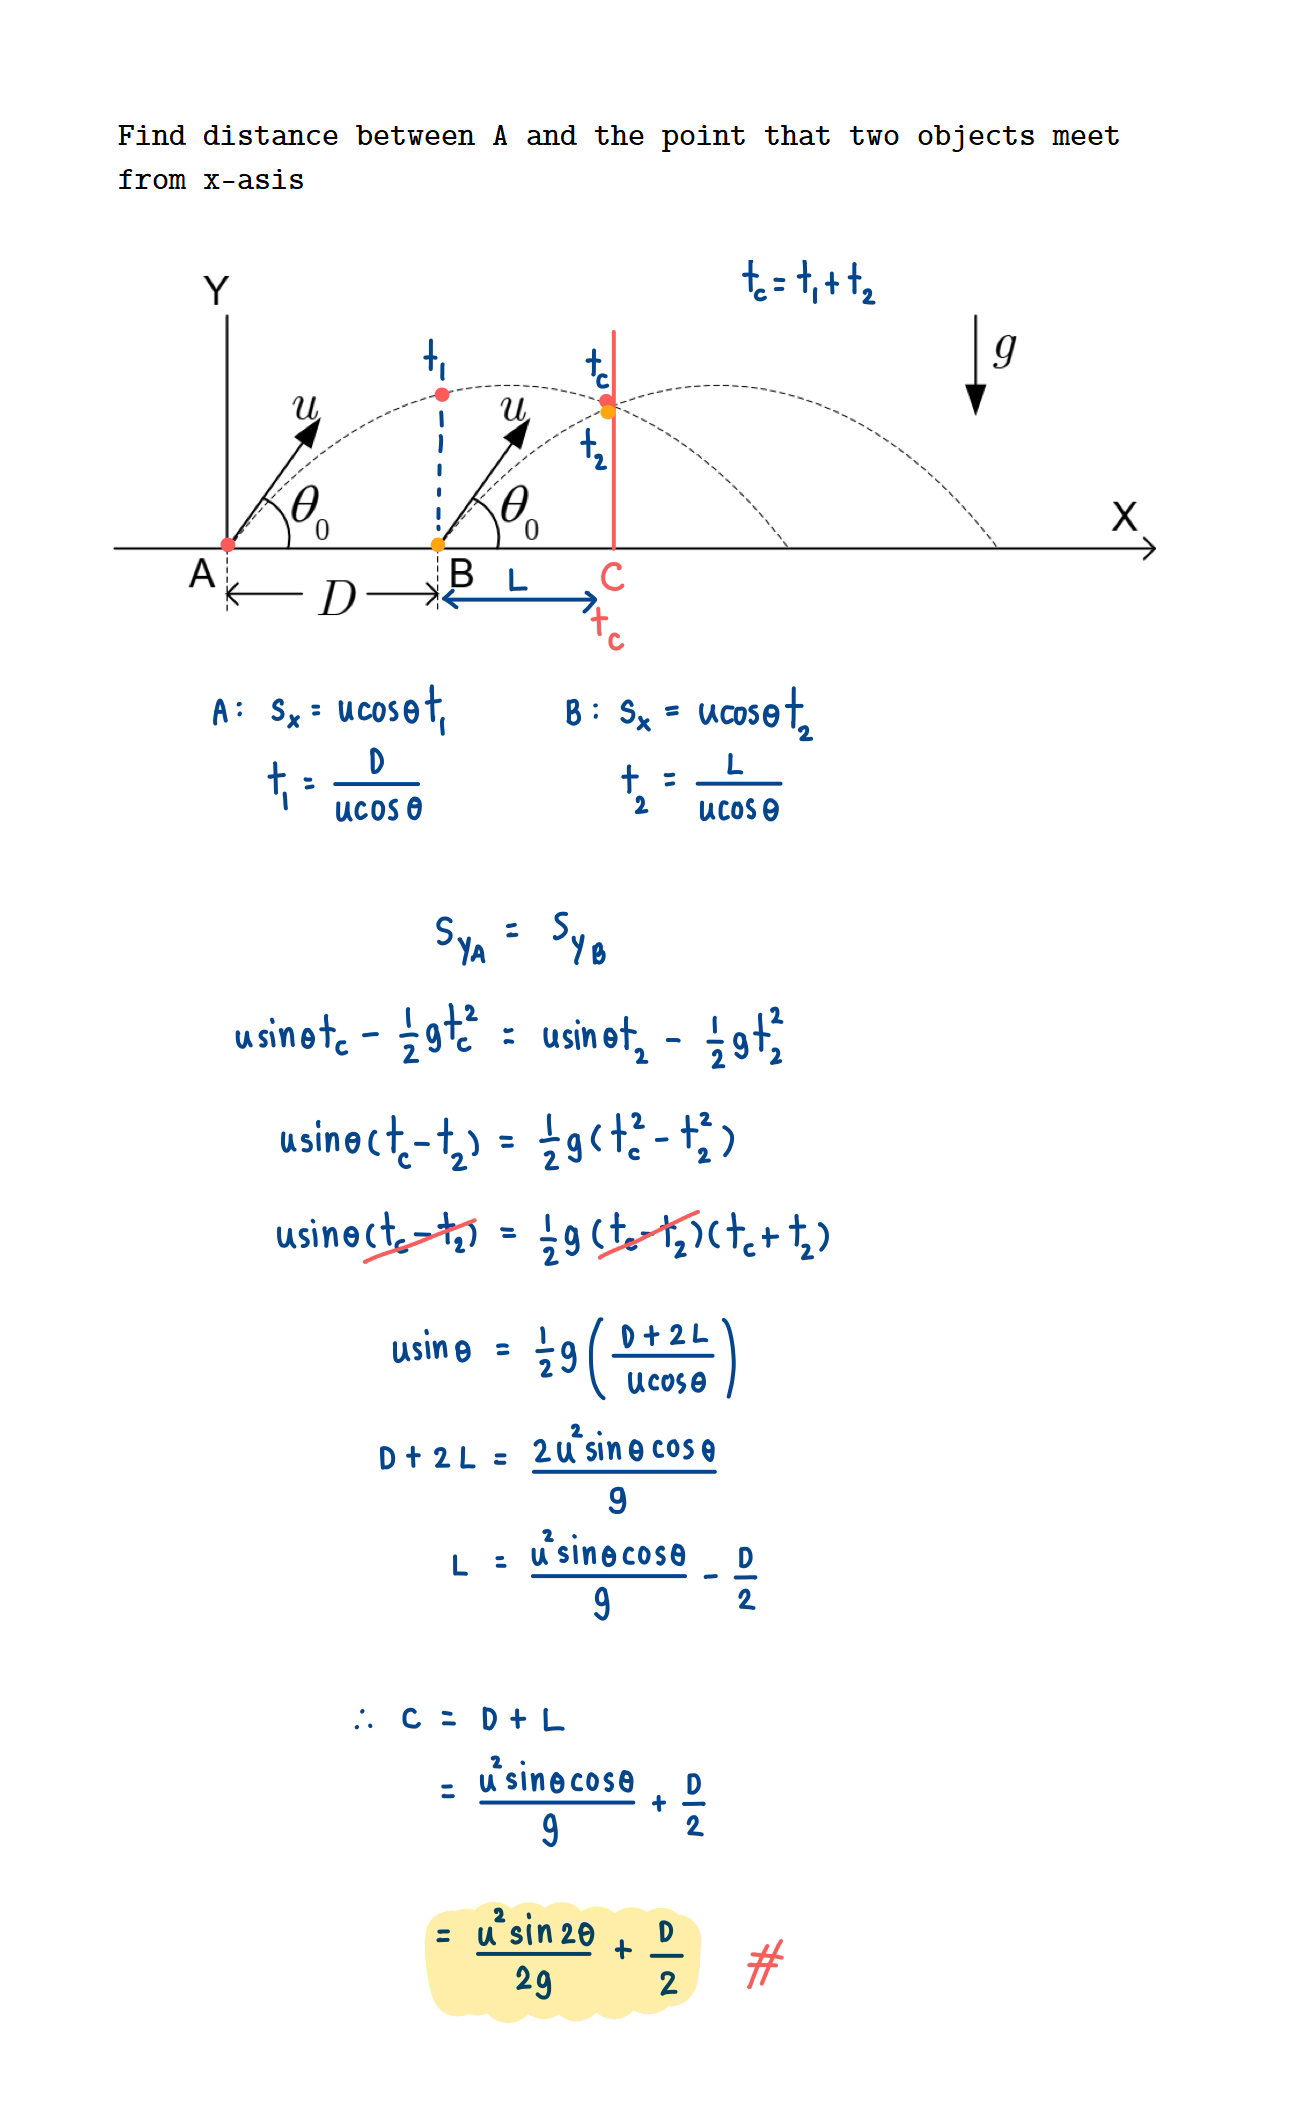 Find distance between A and the point that two objects meet
from x-asis
t_c = t_1 + t_2
Y
g
t_1
t_c
u
u
t_2
θ_0
θ_0
X
A
D
B
L
C
t_c
A: s_x = ucosθt_1
B: s_x = ucosθt_2
t_1 = D/(ucosθ)
t_2 = L/(ucosθ)
s_yA = s_yB
usinθt_c - 1/2 gt_c^2 = usinθt_2 - 1/2 gt_2^2
usinθ(t_c - t_2) = 1/2 g(t_c^2 - t_2^2)
usinθ(t_c - t_2) = 1/2 g(t_c - t_2)(t_c + t_2)
usinθ = 1/2 g((D + 2L)/(ucosθ))
D + 2L = (2u^2 sinθcosθ)/g
L = (u^2 sinθcosθ)/g - D/2
∴ C = D + L
= (u^2 sinθcosθ)/g + D/2
= (u^2 sin2θ)/(2g) + D/2 #